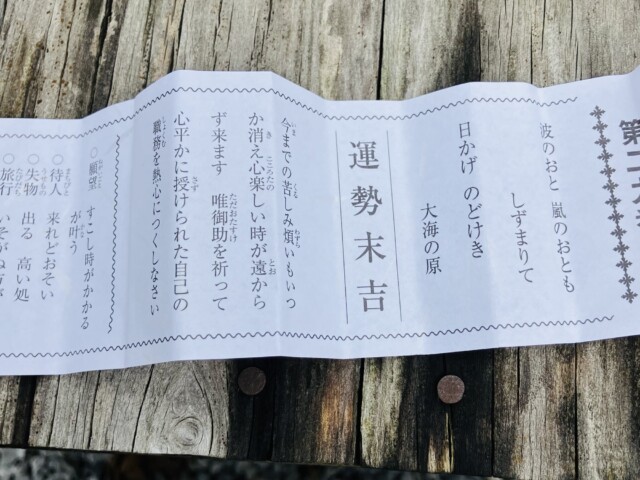 第二
波のおと 嵐のおとも
しずまりて
日かげ のどけき
大海の原
運勢末吉
今までの苦しみ煩いもいつ
か消え心楽しい時が遠から
ず来ます 唯御助を祈って
心平かに授けられた自己の
職務を熱心につくしなさい
○願望 すこし時がかかる
が叶う
○待人 来れどおそい
○失物 出る 高い処
○旅行 いそがぬ方が